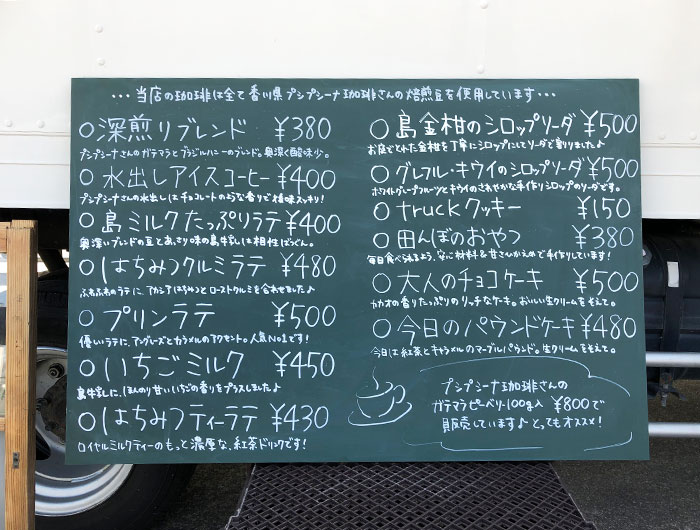 ・・・当店の珈琲は全て香川県プシプシーナ珈琲さんの焙煎豆を使用しています・・・
○深煎りブレンド ¥380
プシプシーナさんのガテマラとブラジルハニーのブレンド。奥深く酸味少。
○水出しアイスコーヒー ¥400
プシプシーナさんの水出しはチョコレートのような香りで後味スッキリ!
○島ミルクたっぷりラテ ¥400
奥深いブレンドの豆とあっさり味の島牛乳は相性ばつぐん。
○はちみつクルミラテ ¥480
ふわふわのラテに、アカシアはちみつとローストクルミを合わせました♪
○プリンラテ ¥500
優しいラテに、アングレーズとカラメルのアクセント。人気No1です!
○いちごミルク ¥450
島牛乳に、ほんのり甘いいちごの香りをプラスしました♪
○はちみつティーラテ ¥430
ロイヤルミルクティーのもっと濃厚な、紅茶ドリンクです!
○島金柑のシロップソーダ ¥500
お庭でとれた金柑を丁寧にシロップにしてソーダで割りました♪
○グレフル・キウイのシロップソーダ ¥500
ホワイトグレープフルーツとキウイのさわやかな手作りシロップのソーダです。
○truckクッキー ¥150
○田んぼのおやつ ¥380
毎日食べられるよう、安心材料&甘さひかえめで手作りしています!
○大人のチョコケーキ ¥500
カカオの香りたっぷりのリッチなケーキ。おいしい生クリームをそえて。
○今日のパウンドケーキ ¥480
今日は紅茶とキャラメルのマーブルパウンド。生クリームをそえて。
プシプシーナ珈琲さんの
ガテマラピーベリー100g入 ¥800で
販売しています♪とってもオススメ!